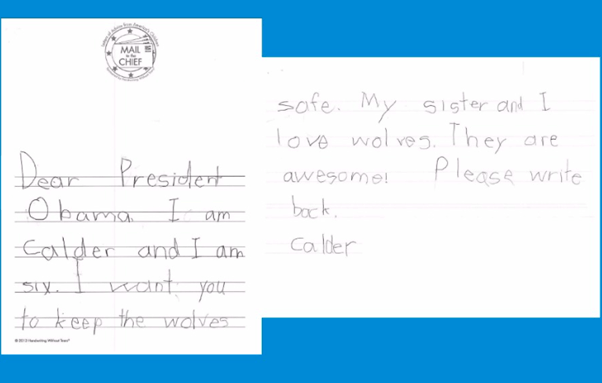 MAIL
to the
CHIEF
Dear President
Obama. I am
Calder and I am
six. I want you
to keep the wolves
© 2013 Handwriting Without Tears®
safe. My sister and I
love wolves. They are
awesome! Please write
back.
Calder